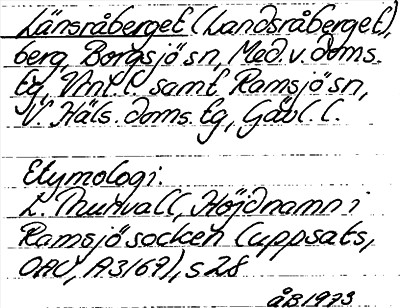 Länsråberget (Landsråberget),
berg Borgsjö sn, Med. v. doms.
tg, Vnl. l. samt Ramsjö sn,
V. Häls. doms. tg, Gävl. l.
Etymologi.
L. Thurvall, Höjdnamn i
Ramsjö socken (uppsats,
OAU, A3169), s 28
ÅB 1973